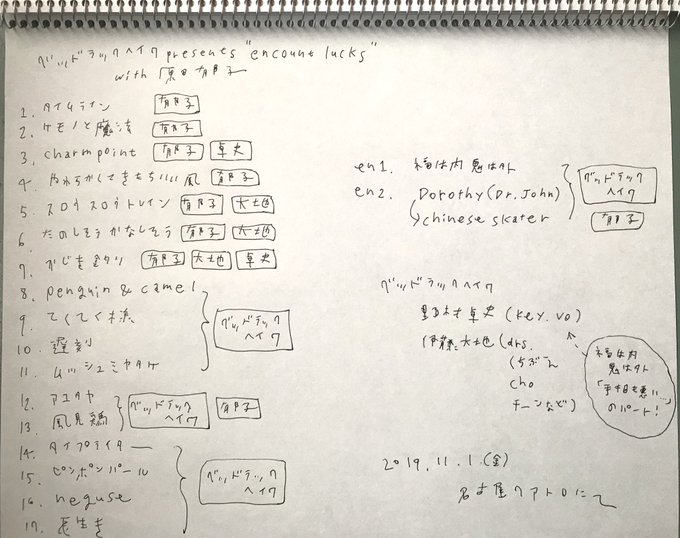 グッドラックヘイワ presents "encount lucks"
with 原田郁子
1. タイムライン 郁子
2. ケモノと魔法 郁子
3. charmpoint 郁子 卓史
4. やわらかくてきもちいい風 郁子
5. スロウスロウトレイン 郁子 大地
6. たのしそう かなしそう 郁子 大地
7. かじき釣り 郁子 大地 卓史
8. penguin & camel
9. てくてく
10. 遅刻
11. ムッシュミヤタケ
グッドラックヘイワ
12. アユタヤ
13. 風見鶏
グッドラックヘイワ 郁子
14. タイプライター
15. ピンポンパール
16. neguse
17. 長生き
グッドラックヘイワ
en1. 福は内 鬼は外
en2. Dorothy (Dr. John)
↳ chinese skater
グッドラックヘイワ
郁子
グッドラックヘイワ
野村卓史 (key. vo)
伊藤大地 (drs.
くちぶえ
cho
チーンなど)
福は内
鬼は外
「手も目も悪い…」
のパート!
2019. 11. 1. (金)
名古屋クアトロにて